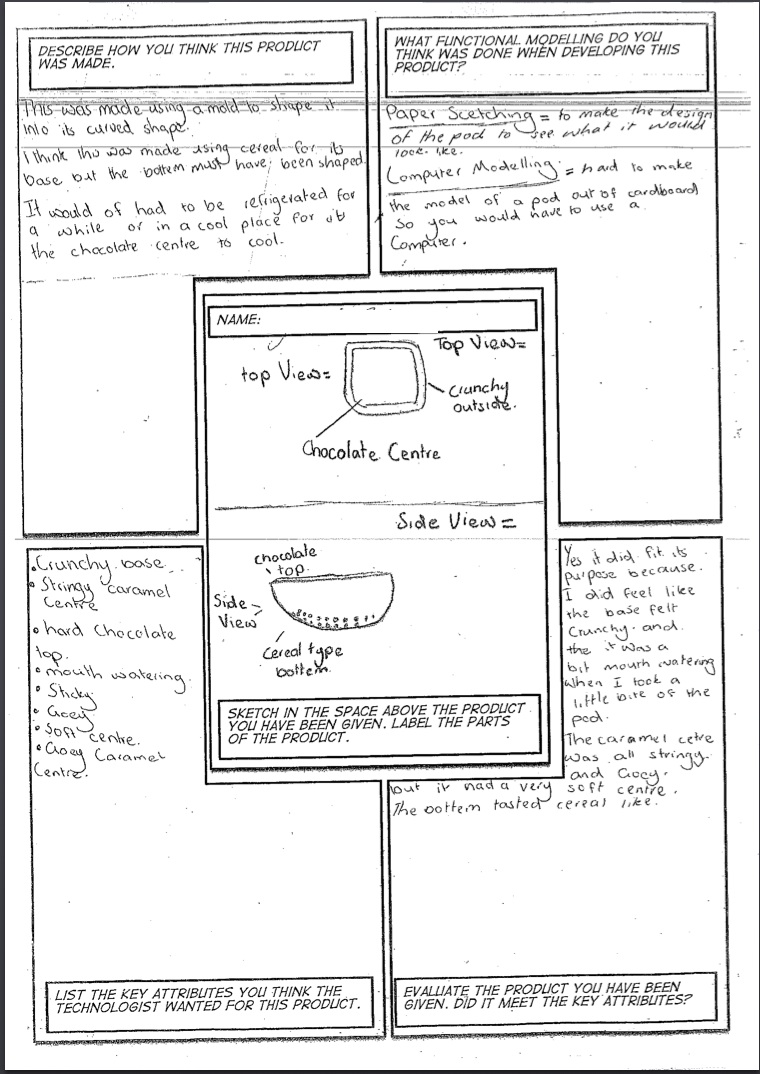 DESCRIBE HOW YOU THINK THIS PRODUCT
WAS MADE.
This was made using a mold to shape it
into its curved shape.
I think this was made using cereal for its
base but the bottem must have been shaped.
It would of had to be refrigerated for
a while or in a cool place for
the chocolate centre to cool.
WHAT FUNCTIONAL MODELLING DO YOU
THINK WAS DONE WHEN DEVELOPING THIS
PRODUCT?
Paper Scetching = to make the design
of the pod to see what it would
look like.
Computer Modelling. = hard to make
the model of a pod out of cardboard
So you would have to use a
Computer.
NAME:
Top View=
top View=
Crunchy
outside.
Chocolate Centre
Side View =
chocolate
top.
Side
View
Cereal type
bottem.
SKETCH IN THE SPACE ABOVE THE PRODUCT
YOU HAVE BEEN GIVEN. LABEL THE PARTS
OF THE PRODUCT.
• Crunchy base
• Stringy caramel
Centre
• hard Chocolate
top.
• mouth watering.
• Sticky
• Goey
• Soft centre.
• Goey Caramel
Centre.
LIST THE KEY ATTRIBUTES YOU THINK THE
TECHNOLOGIST WANTED FOR THIS PRODUCT.
Yes it did fit its
purpose because.
I did feel like
the base felt
Crunchy. and
the it was a
bit mouth watering
when I took a
little bite of the
pod.
The caramel cetre
was all stringy.
and Goey.
but it had a very soft centre.
The bottem tasted cereal like.
EVALUATE THE PRODUCT YOU HAVE BEEN
GIVEN. DID IT MEET THE KEY ATTRIBUTES?